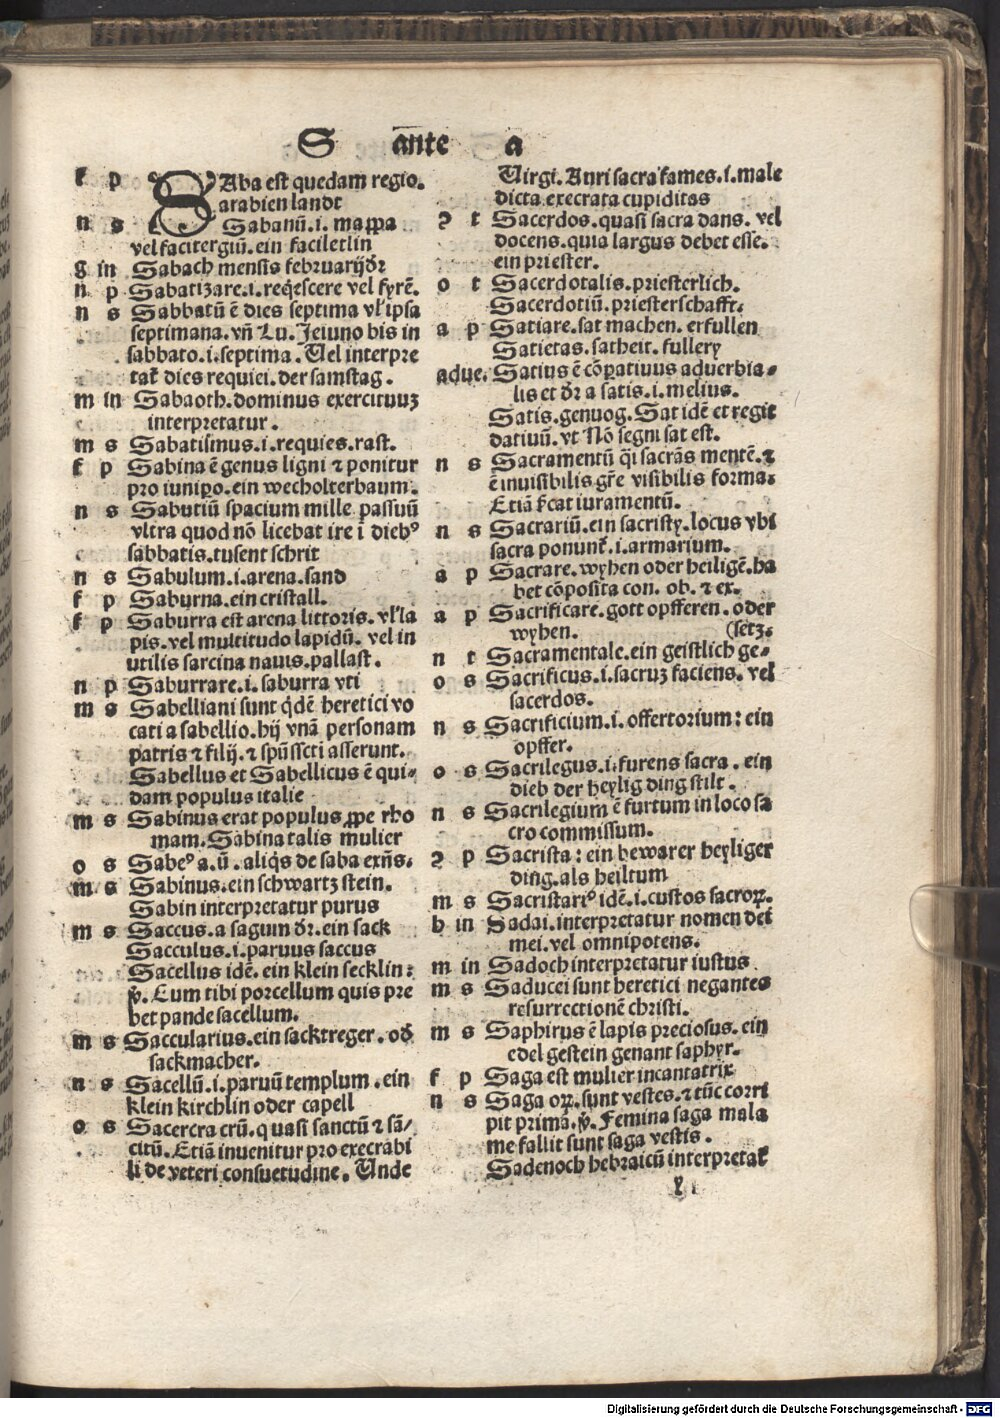 S añte a
f p SAba est quedam regio.
arabien landt
n s Sabanū.i. mappa
vel facitergiū.ein faciletlin
g in Sabach mensis februarij dr̄
n p Sabatizare.i.reqͥescere vel fyrē.
n s Sabbatū ē dies septima vl' ipsa
septimana. vñ Lu. Jeiuno bis in
sabbato.i.septima. Uel interpre
tat̄ dies requiei. der samstag.
m in Sabaoth.dominus exercituuz
interpretatur.
m s Sabatismus.i.requies.rast.
f p Sabina ē genus ligni ⁊ ponitur
pro iunipo.ein wecholterbaum.
n s Sabutiū spacium mille passuū
vltra quod nō licebat ire ī diebꝰ
sabbatis.tusent schrit
n s Sabulum.i.arena.sand
f p Saburna.ein cristall.
f p Saburra est arena littoris. vl' la
pis.vel multitudo lapidū. vel in
utilis sarcina nauis.pallast.
n p Saburrare.i.saburra vti
m s Sabelliani sunt qͥdē heretici vo
cati a sabellio.hij vnā personam
patris ⁊ filij.⁊ spūssc̄ti asserunt.
Sabellus et Sabellicus ē qui-
dam populus italie
m s Sabinus erat populus ꝓpe rho
mam.Sabina talis mulier
o s Sabeꝰ a.ū.aliqͥs de saba exn̄s.
m s Sabinus.ein schwartz stein.
Sabin interpretatur purus
m s Saccus.a sagum dr̄.ein sack
Sacculus.i.paruus saccus
Sacellus idē.ein klein secklin:
ꝟ. Cum tibi porcellum quis pre
bet pande sacellum.
m s Saccularius.ein sacktreger.od̄
sackmacher.
n s Sacellū.i.paruū templum.ein
klein kirchlin oder capell
o s Sacer cra crū.quasi sanctū ⁊ sā/
citū.Etiā inuenitur pro execrabi
li de veteri consuetudine. Unde
Uirgi. Auri sacra fames.i.male
dicta execrata cupiditas
ꝯ t Sacerdos.quasi sacra dans. vel
docens.quia largus debet esse.
ein priester.
o t Sacerdotalis.priesterlich.
Sacerdotiū.priesterschafft.
a p Satiare.sat machen. erfullen
Satietas.satheit.fullery
adue. Satius ē cōꝑatiuus aduerbia-
lis et dr̄ a satis.i.melius.
Satis.genuog. Sat idē et regit
datiuū.vt Nō segni sat est.
n s Sacramentū qͣi sacrās mentē.⁊
ē inuisibilis gr̄e visibilis forma.
Etiā f̄cat iuramentū.
n s Sacrariū.ein sacristy.locus vbi
sacra ponunt̄.i.armarium.
a p Sacrare.wyhen oder heiligē.ha
bet cōposita con. ob. ⁊ ex.
a p Sacrificare.gott opfferen.oder
wyhen. (setz.
n t Sacramentale.ein geistlich ge-
o s Sacrificus.i.sacruz faciens. vel
sacerdos.
n s Sacrificium.i.offertorium: ein
opffer.
o s Sacrilegus.i.furens sacra.ein
dieb der heylig ding stilt.
n s Sacrilegium ē furtum in loco sa
cro commissum.
ꝯ p Sacrista: ein bewarer heyliger
ding.als heiltum
m s Sacristariꝰ idē.i.custos sacroꝝ.
b in Sadai.interpretatur nomen dei
mei.vel omnipotens.
m in Sadoch interpretatur iustus
m s Saducei sunt heretici negantes
resurrectionē christi.
m s Saphirus ē lapis preciosus.ein
edel gestein genant saphyr.
f p Saga est mulier incantatrix
n s Saga oꝝ.sunt vestes.⁊ tūc corri
pit primā.ꝟ. Femina saga mala
me fallit sunt saga vestis.
Sadenoch hebraicū interpretat̄
y
Digitalisierung gefördert durch die Deutsche Forschungsgemeinschaft - DFG